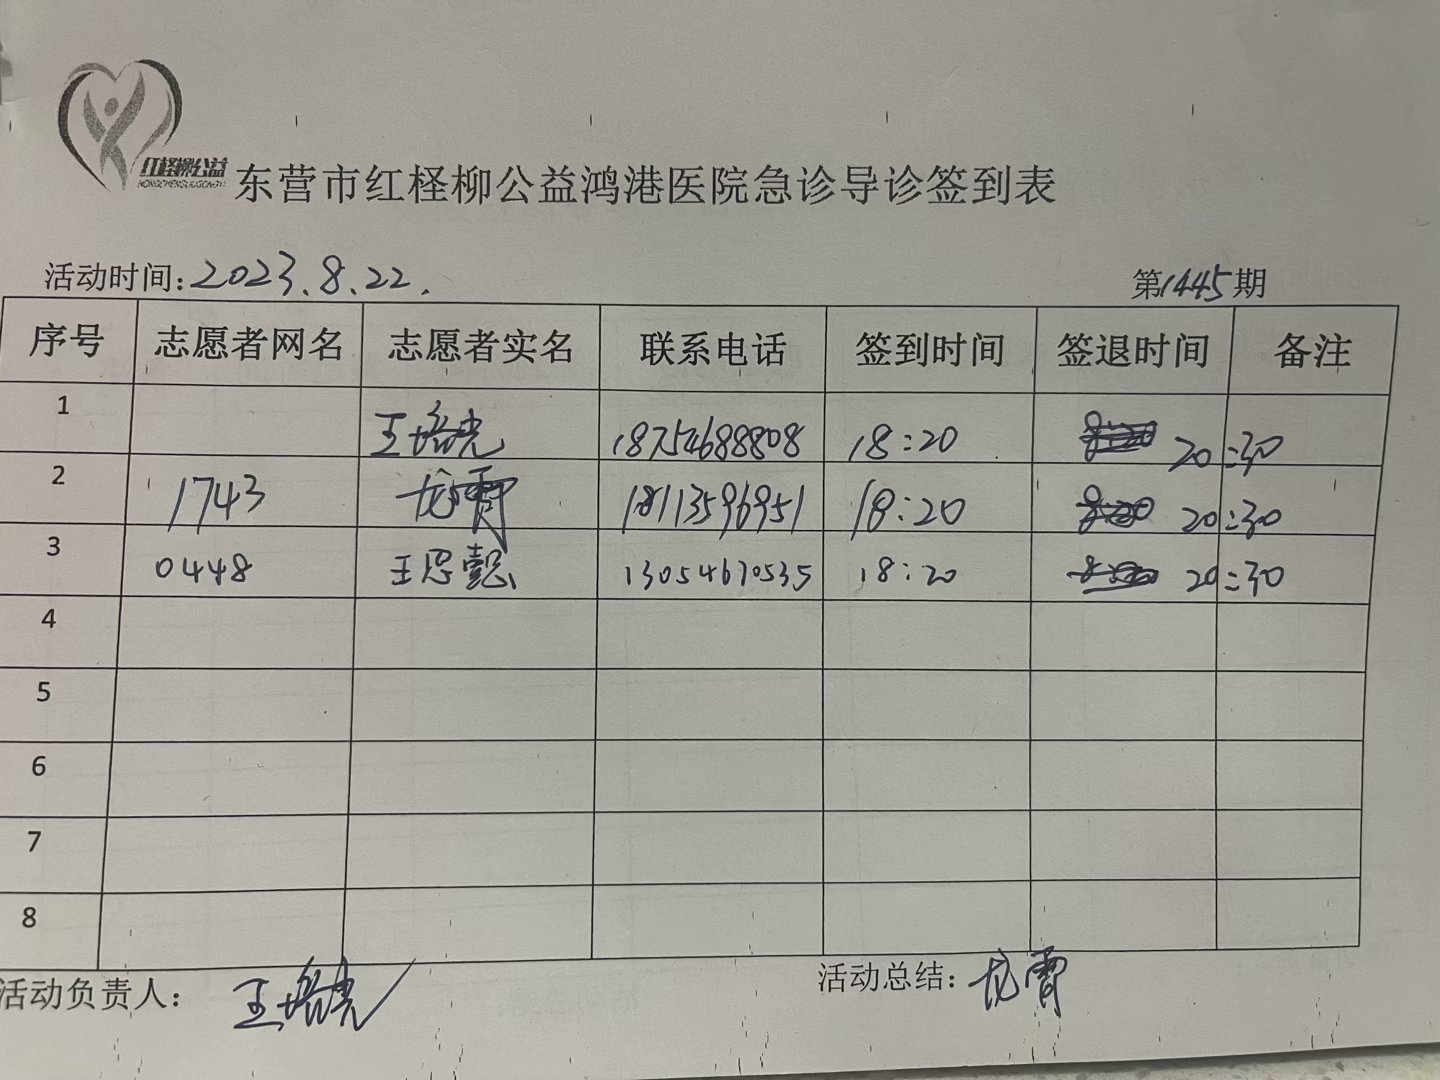 红柽柳公益
HONGCHENGLIUGONGYI
东营市红柽柳公益鸿港医院急诊导诊签到表
活动时间:2023.8.22.
第1445期
序号 志愿者网名 志愿者实名 联系电话 签到时间 签退时间 备注
1 王培光 18754688808 18:20 20:30
2 1743 龙霄 18113596951 18:20 20:30
3 0448 王思懿 13054670535 18:20 20:30
4
5
6
7
8
活动负责人: 王培光
活动总结: 龙霄